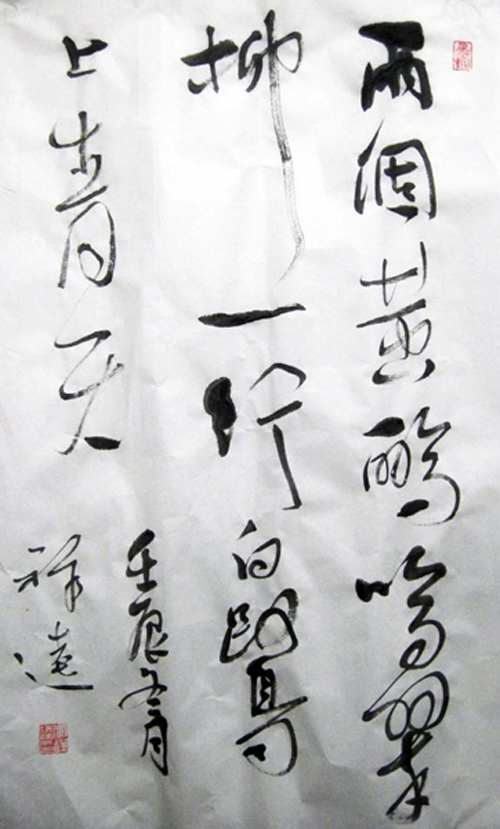 兩個黃鸝鳴翠
柳一行白鷺
上青天
壬辰冬月
祥遠